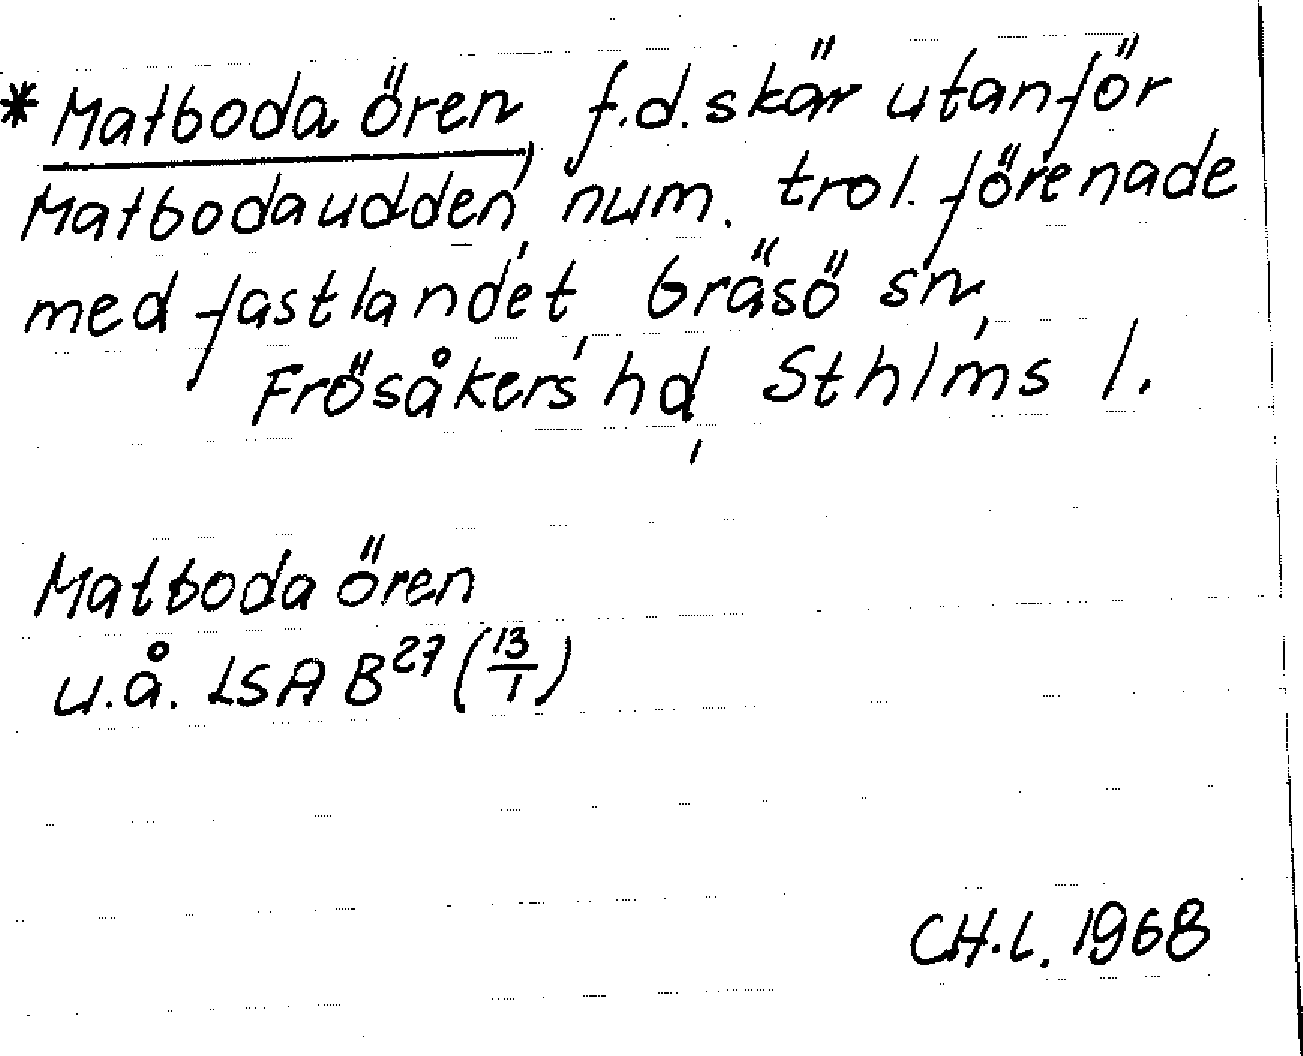 * Matboda ören, f.d. skär utanför
Matbodaudden, num. trol. förenade
med fastlandet, Gräsö sn,
Frösåkers hd, Sthlms l.
Matboda ören
u.å. LSA B²⁷ (13/1)
CH.L. 1968